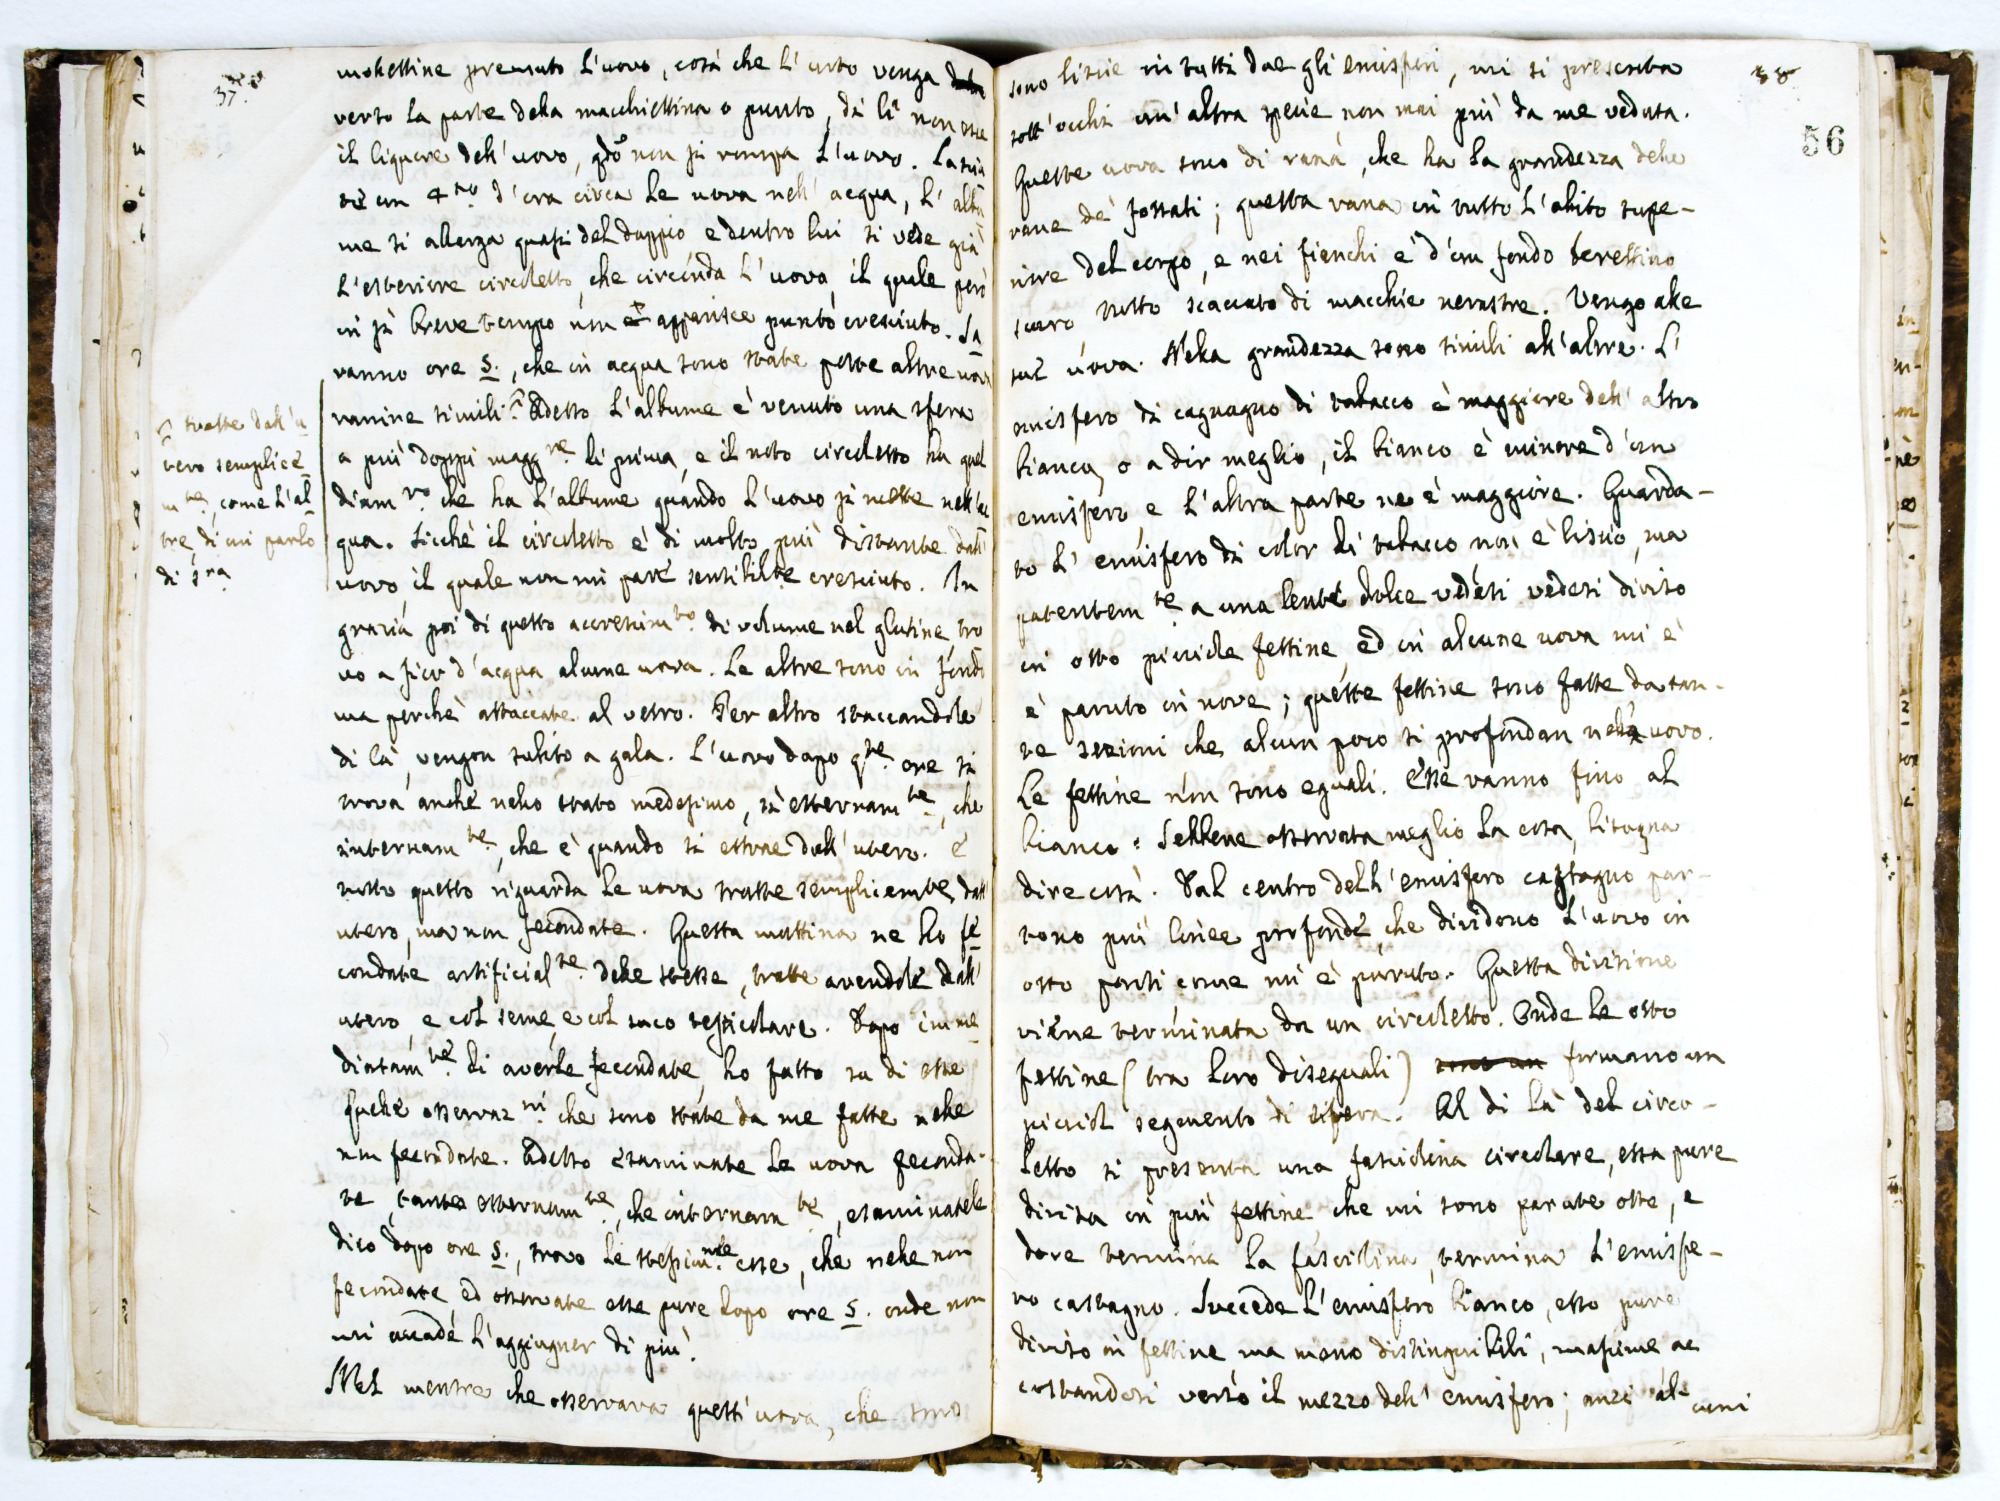 37.
mollettine premuto l'uovo, così che l'urto venga
verso la parte della macchiettina o punto, di lì non esce
il liquore dell'uovo, qdo non si rompa l'uovo. Lascia
te un 4to d'ora circa le uova nell'acqua, l'albu
me si allarga quasi del doppio e dentro lui si vede già
l'esteriore circoletto, che circonda l'uova, il quale però
in sì breve tempo non apparisce punto cresciuto. Sa
ranno ore 5., che in acqua sono state poste altre uova
ranine simili. Adesso l'albume è venuto una sfera
a più doppi magg.re di prima, e il noto circoletto ha quel
diam.ro che ha l'albume quando l'uovo si mette nell'ac
qua. Sicchè il circoletto è di molto più distante dall'
uovo il quale non mi pare sensibilte cresciuto. In
grazia poi di questo accrescim.to di volume nel glutine tro
vo a fior d'acqua alcune uova. Le altre sono in fondo
ma perchè attaccate al vetro. Per altro staccandole
di là, vengon subito a gala. L'uovo dopo qte ore si
trova anche nello stato medesimo, sì esternam.te, che
internam.te, che è quando si estrae dall'utero. E
tutto questo riguarda le uova tratte semplicemte dall'
utero, ma non fecondate. Questa mattina ne ho fe
condate artificial.te delle stesse, tratte avendole dall'
utero, e col seme, e col suco testicolare. Dopo imme
diatam.te di averle fecondate, ho fatto su di esse
quelle osservaz.ni che sono state da me fatte nelle
non fecondate. Adesso esaminate le uova feconda-
te, tanto esternam.te, che internam.te, esaminatele
dico dopo ore 5., trovo le stessissime esse, che nelle non
fecondate ed osservate esse pure dopo ore 5. onde non
mi accade l'aggiugner di più.
Nel mentre che osservava quest'uova, che sono
tratte dall'u
tero semplice
m.te, come l'al
tre, di cui parlo
di sra
38
56
sono liscie in tutti due gli emisferi, mi si presenta
sott'occhi un'altra specie non mai più da me veduta.
Queste uova sono di rana, che ha la grandezza delle
rane de' fossati; questa rana in tutto l'abito supe-
riore del corpo, e nei fianchi è d'un fondo berettino
scuro, tutto scaccato di macchie nerastre. Vengo alle
sue uova. Nella grandezza sono simili all'altre. L'
emisfero di castagno di tabacco è maggiore dell'altro
bianco, o a dir meglio, il bianco è minore d'un
emisfero, e l'altra parte ne è maggiore. Guarda-
to l'emisfero di color di tabacco non è liscio, ma
patentem.te a una lente dolce vedesi vedesi diviso
in otto picciole fettine, ed in alcune uova mi è
è paruto in nove; queste fettine sono fatte da tan-
te sezioni che alcun poco si profondan nell'uovo.
Le fettine non sono eguali. Esse vanno fino al
bianco: Sebbene osservata meglio la cosa, bisogna
dire così. Dal centro dell'emisfero castagno par-
tono più linee profonde, che dividono l'uovo in
otto parti come mi è paruto. Questa divisione
viene terminata da un circoletto. Onde le otto
fettine (tra loro diseguali) formano un
picciol segmento di sfera. Al di là del circo-
letto si presenta una fasciolina circolare, essa pure
divisa in più fettine che mi sono parute otto, e
dove termina la fasciolina, termina l'emisfe-
ro castagno. Succede l'emisfero bianco, esso pure
diviso in fettine ma meno distinguibili, massime ac
costandosi verso il mezzo dell'emisfero; anzi al-cuni